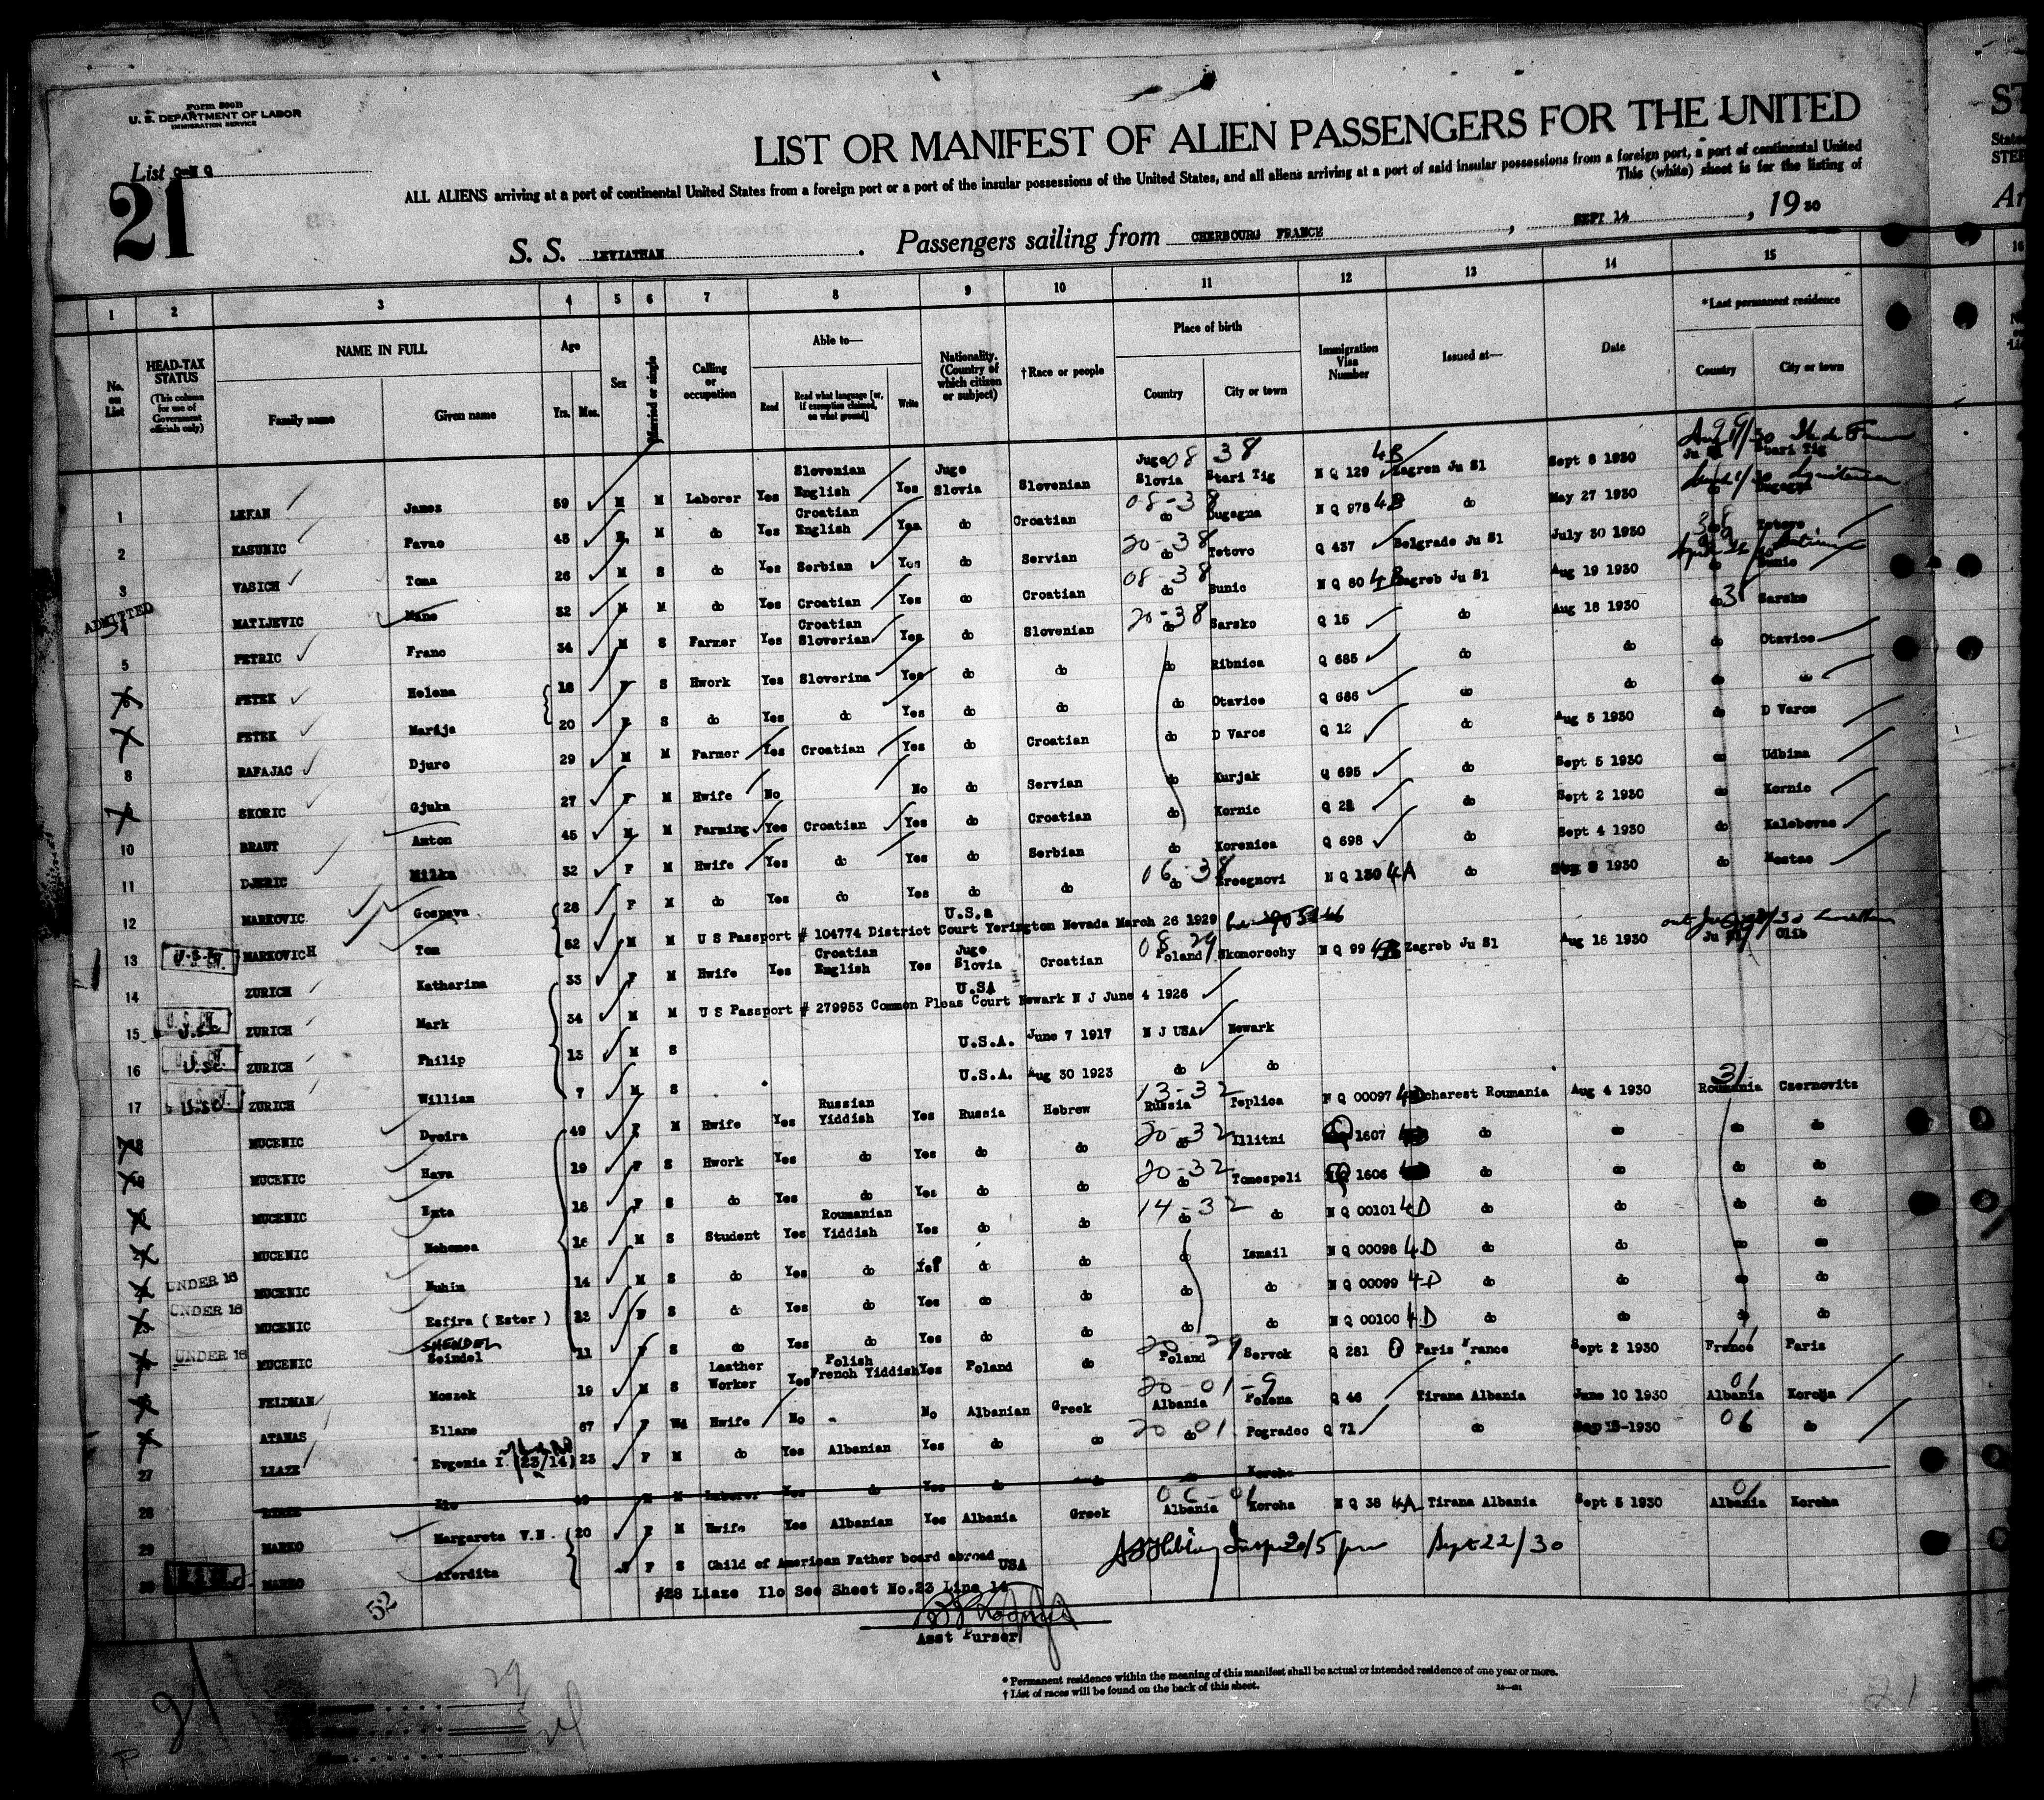 Form 500B
U. S. DEPARTMENT OF LABOR
IMMIGRATION SERVICE
List
21
LIST OR MANIFEST OF ALIEN PASSENGERS FOR THE UNITED
ALL ALIENS arriving at a port of continental United States from a foreign port or a port of the insular possessions of the United States, and all aliens arriving at a port of said insular possessions from a foreign port, a port of continental United
This (white) sheet is for the listing of
S. S. LEVIATHAN . Passengers sailing from CHERBOURG FRANCE , SEPT 14 , 19 30
1 2 3 4 5 6 7 8 9 10 11 12 13 14 15 16
No. on List
HEAD-TAX STATUS (This column for use of Government officials only)
NAME IN FULL Family name Given name
Age Yrs. Mos.
Sex
Married or single
Calling or occupation
Able to— Read Read what language [or, if exemption claimed, on what ground] Write
Nationality. (Country of which citizen or subject)
†Race or people
Place of birth Country City or town
Immigration Visa Number
Issued at—
Date
*Last permanent residence Country City or town
1 LEKAN Janez 59 M M Laborer Yes Slovenian English Yes Jugo Slovia Slovenian Jugo Slovia 08 38 Stari Tig N Q 129 4B Zagren Ju Sl Sept 8 1930 Ju Sl Stari Tig
2 KASUNIC Pavao 45 M M do Yes Croatian English Yes do Croatian do 08-38 Dugagna N Q 978 4B do May 27 1930 do Dugagna
3 VASICH Toma 26 M S do Yes Serbian Yes do Servian do 20-38 Tetovo Q 437 Belgrade Ju Sl July 30 1930 do Tetovo
ADMITTED MATIJEVIC Mane 32 M M do Yes Croatian Yes do Croatian do 08-38 Bunic N Q 80 4B Zagreb Ju Sl Aug 19 1930 do Bunic
5 PETRIC Frano 34 M S Farmer Yes Croatian Sloverian Yes do Slovenian do 20-38 Sarsko Q 15 do Aug 18 1930 do Sarsko
6 PETEK Helena 18 F S Hwork Yes Sloverina Yes do do do Ribnica Q 685 do do do Otavice
PETEK Marija 20 F S do Yes do Yes do do do Otavice Q 686 do do do do
8 RAFAJAC Djuro 29 M M Farmer Yes Croatian Yes do Croatian do D Varos Q 12 do Aug 5 1930 do D Varos
9 SKORIC Gjuka 27 F M Hwife No No do Servian do Kurjak Q 695 do Sept 5 1930 do Udbina
10 BRAUT Anton 45 M M Farming Yes Croatian Yes do Croatian do Kornic Q 22 do Sept 2 1930 do Kornic
11 DJERIC Milka 32 F M Hwife Yes do Yes do Serbian do Korenica Q 698 do Sept 4 1930 do Kalebovac
12 MARKOVIC Gospava 28 F M do Yes do Yes do do do 06-38 Ercegnovi N Q 130 4A do 1930 do Mostac
13 MARKOVICH Tom 52 M M U.S.a U S Passport # 104774 District Court Yerington Nevada March 26 1929
14 ZURICH Katharina 33 F M Hwife Yes Croatian English Yes Jugo Slovia Croatian Poland 08 29 Skomorochy N Q 99 4B Zagreb Ju Sl Aug 18 1930 Ju Sl Olib
15 ZURICH Mark 34 M M USA U S Passport # 279953 Common Pleas Court Newark N J June 4 1926
16 ZURICH Philip 13 M S U.S.A. June 7 1917 N J USA Newark
17 ZURICH William 7 M S U.S.A. Aug 30 1923 do do
18 MUCENIC Dvoira 49 F M Hwife Yes Russian Yiddish Yes Russia Hebrew Russia 13-32 Teplica N Q 00097 4D Bucharest Roumania Aug 4 1930 Roumania 31 Czernovitz
19 MUCENIC Hava 19 F S Hwork Yes do Yes do do do 20-32 Illitni Q 1607 do do do do
MUCENIC Enta 18 F S do Yes do Yes do do do 20-32 Tomespeli Q 1606 do do do do
MUCENIC Nehemea 16 M S Student Yes Roumanian Yiddish Yes do do do 14-32 do N Q 00101 4D do do do do
UNDER 16 MUCENIC Nuhim 14 M S do Yes do Yes do do do Ismail N Q 00098 4D do do do do
UNDER 16 MUCENIC Esfira ( Ester ) F S do Yes do Yes do do do do N Q 00099 4D do do do do
UNDER 16 MUCENIC SHENDEL Seindel 11 F S do Yes do Yes do do do do N Q 00100 4D do do do do
FELDMAN Moszek 19 M S Leather Worker Yes Polish French Yiddish Yes Poland do Poland 20 29 Servok Q 281 Paris France Sept 2 1930 France Paris
ATANAS Ellane 67 F Wd Hwife No - No Albanian Greek Albania 20-01-9 Polena Q 46 Tirana Albania June 10 1930 Albania 01 Korcha
27 LIAZE Evgenia I. (23/14) 23 F M do Yes Albanian Yes do do do 20 01 Pogradec Q 71 do Sep 15-1930 do
28 LIAZE Ilo M M Laborer Yes do Yes do do do Korcha
29 MARKO Margareta V.N. 20 F M Hwife Yes Albanian Yes Albania Greek Albania Korcha N Q 38 4A Tirana Albania Sept 5 1930 Albania 01 Korcha
30 MARKO Aferdita F S Child of American Father board abroad USA
#28 Liaze Ilo See Sheet No.23 Line 14
Sept 22/30
52
Asst Purser
* Permanent residence within the meaning of this manifest shall be actual or intended residence of one year or more.
† List of races will be found on the back of this sheet.
21